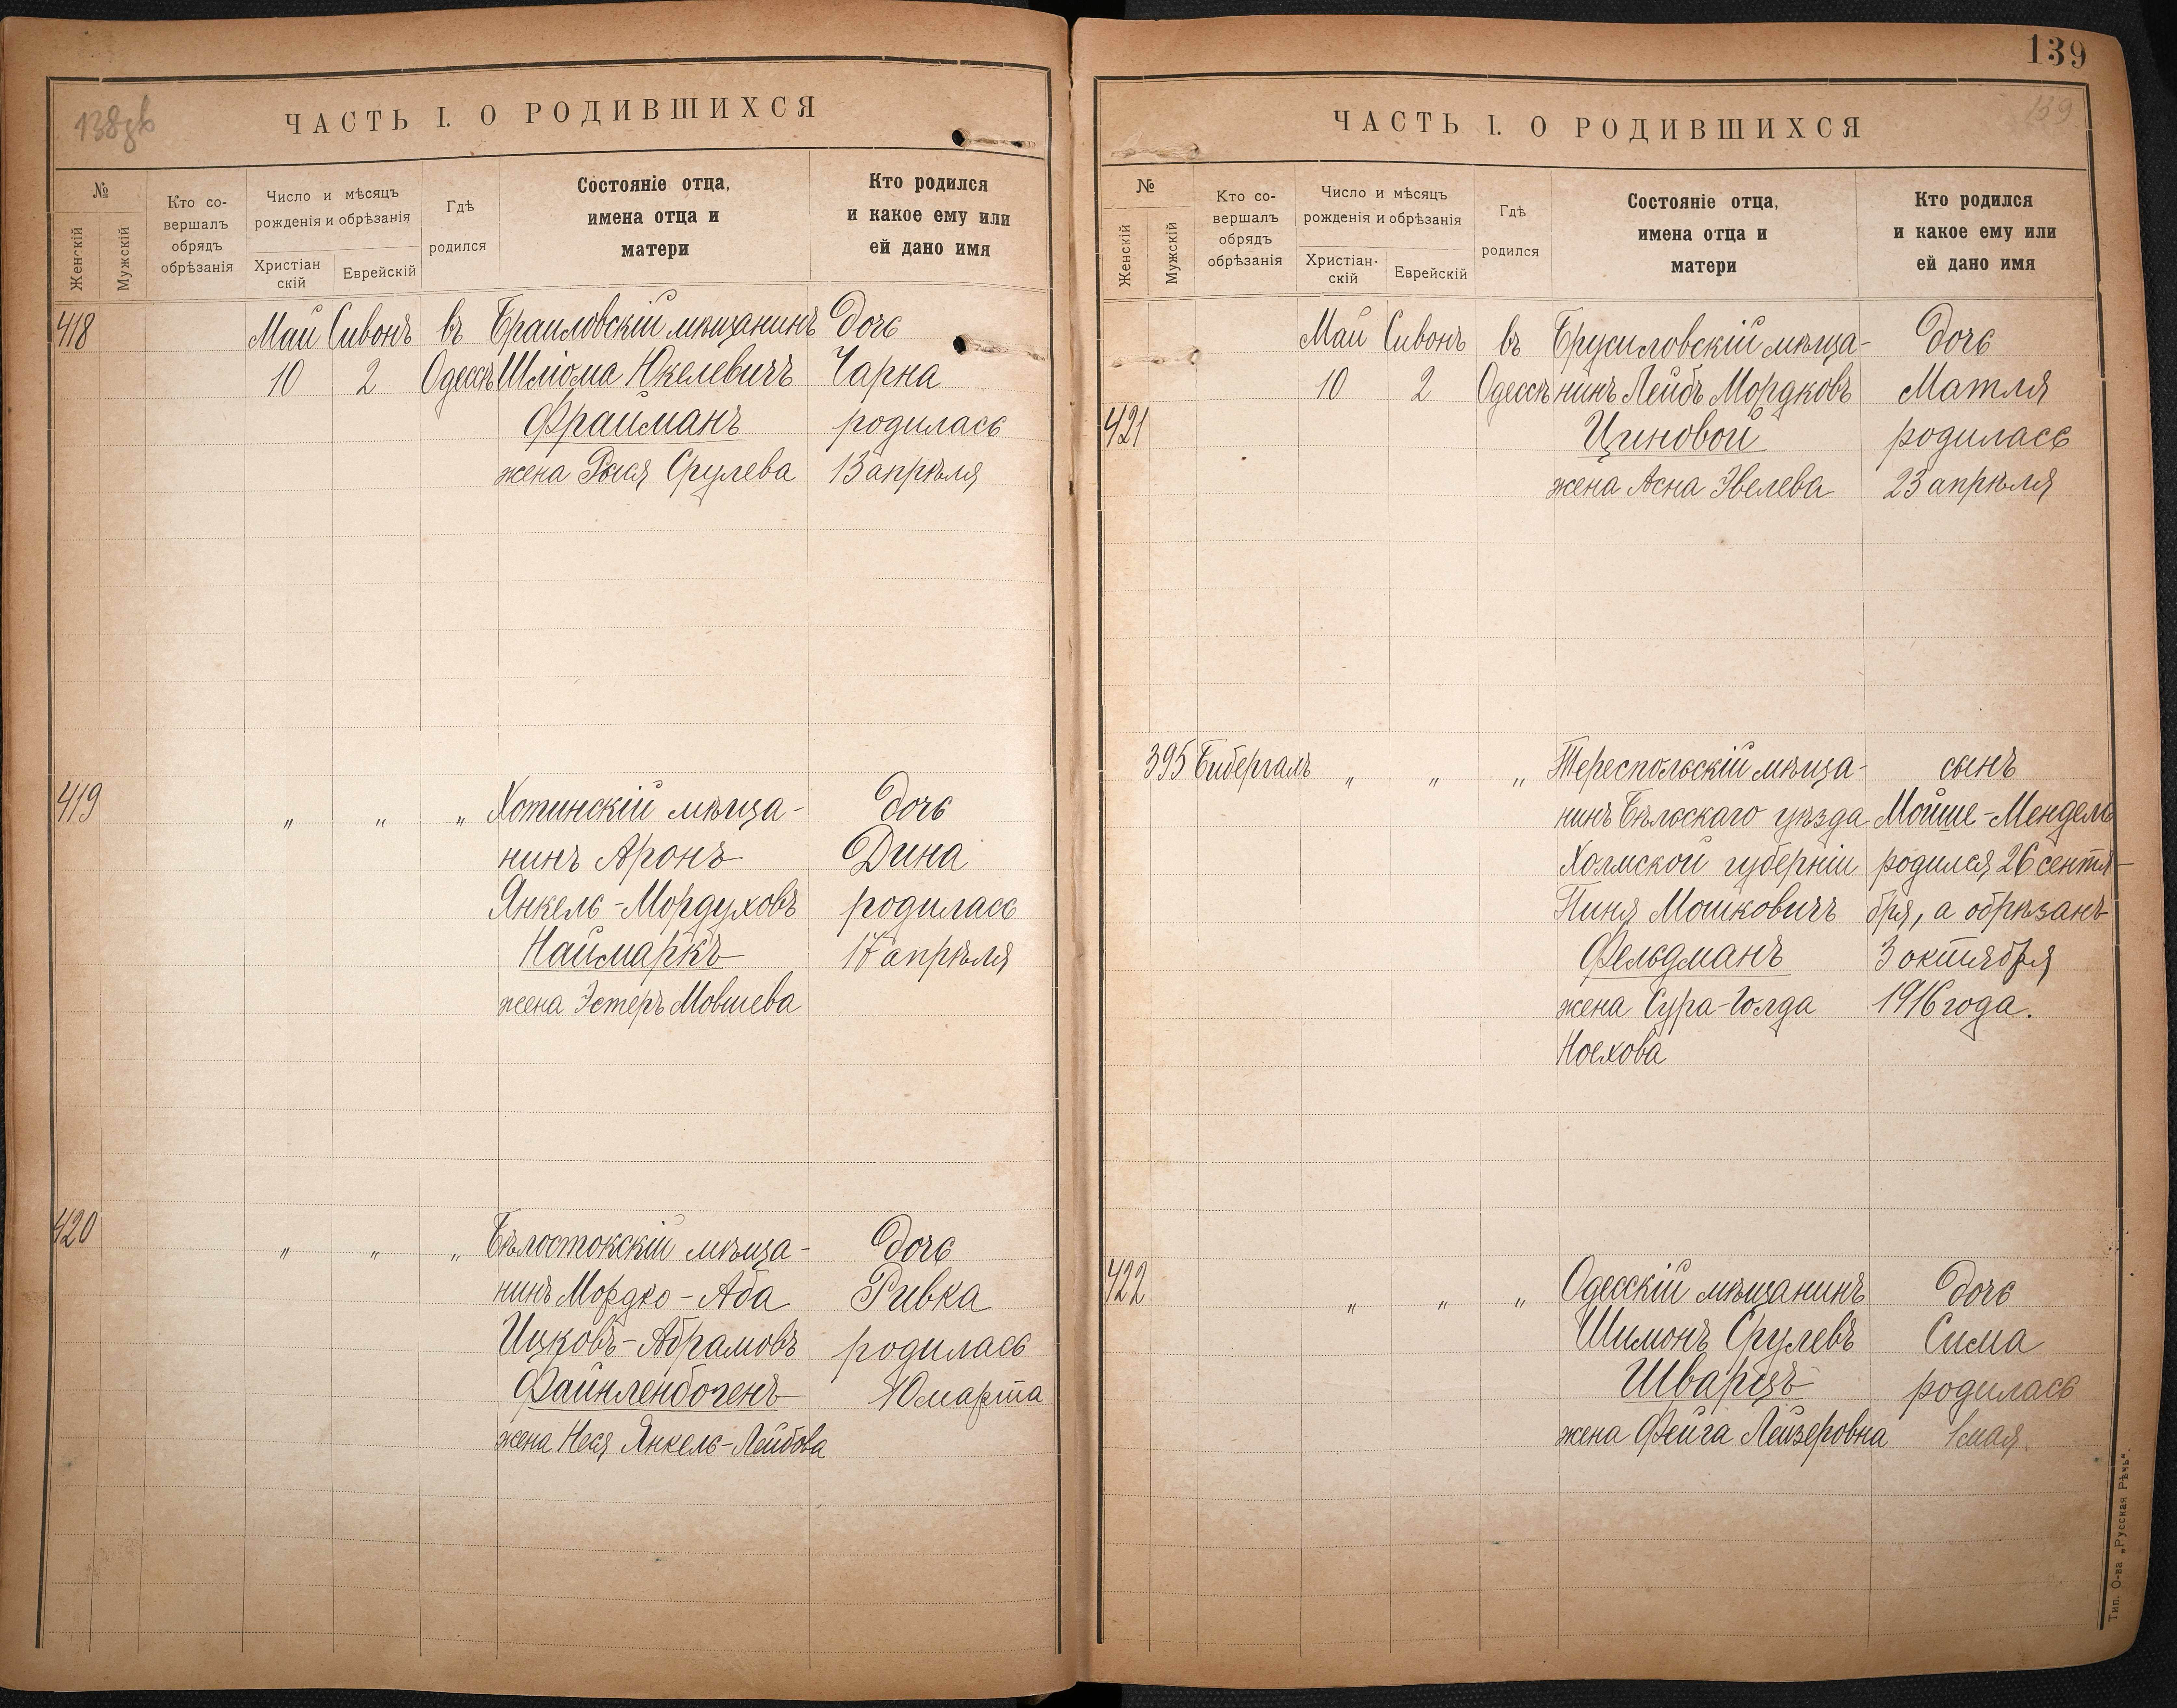 138 об
ЧАСТЬ I. О РОДИВШИХСЯ
№
Женскій
Мужскій
Кто со-
вершалъ
обрядъ
обрѣзанія
Число и мѣсяцъ
рожденія и обрѣзанія
Христіан
скій
Еврейскій
Гдѣ
родился
Состояніе отца,
имена отца и
матери
Кто родился
и какое ему или
ей дано имя
418 Май Сивонъ въ Браиловскій мѣщанинъ дочь
10 2 Одессѣ Шліома Юкелевичъ Чарна
Фрайманъ родилась
жена Рыся Срулева 13 апрѣля
419 „ „ „ Хотинскій мѣща- дочь
нинъ Аронъ Дина
Янкель-Мордуховъ родилась
Наймаркъ 17 апрѣля
жена Эстеръ Мовшева
420 „ „ „ Бѣлостокскій мѣща- дочь
нинъ Мордко-Аба Ривка
Ицковъ-Абрамовъ родилась
Файнленбогенъ 10 марта
жена Неся Янкель-Лейбова
139
139
ЧАСТЬ I. О РОДИВШИХСЯ
№
Женскій
Мужскій
Кто со-
вершалъ
обрядъ
обрѣзанія
Число и мѣсяцъ
рожденія и обрѣзанія
Христіан-
скій
Еврейскій
Гдѣ
родился
Состояніе отца,
имена отца и
матери
Кто родился
и какое ему или
ей дано имя
Май Сивонъ въ Брусиловскій мѣща- дочь
10 2 Одессѣ нинъ Лейбъ Мордковъ Матля
421 Циновой родилась
жена Асна Эвелева 23 апрѣля
395 Бибергалъ „ „ „ Тереспольскій мѣща- сынъ
нинъ Бѣльскаго уѣзда Мойше-Мендель
Холмской губерніи родился 26 сентя-
Пиня Мошковичъ бря, а обрѣзанъ
Фельдманъ 3 октября
жена Сура-Голда 1916 года.
Ноехова
422 „ „ „ Одесскій мѣщанинъ дочь
Шимонъ Срулевъ Сима
Шварцъ родилась
жена Фейга Лейзеровна 1 мая
Тип. О-ва „Русская Рѣчь".